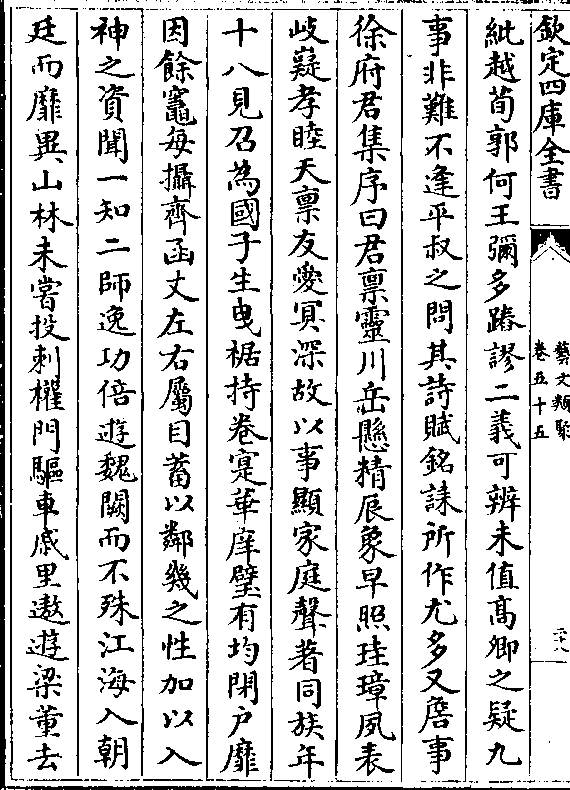 欽定四庫全書
藝文類聚
卷五十五
二十八
紕越荀郭何王彌多踳謬二義可辨未值高卿之疑九
事非難不逢平叔之問其詩賦銘誄所作尤多又詹事
徐府君集序曰君禀靈川岳懸精辰象早照珪璋夙表
岐嶷孝睦天禀友愛冥深故以事顯家庭聲著同族年
十八見召為國子生曳裾持卷寔華庠璧有均閉户靡
因餘竈每攝齊函丈左右屬目蓄以鄰幾之性加以入
神之資聞一知二師逸功倍遊魏闕而不殊江海入朝
廷而靡異山林未嘗投刺權門驅車戚里遨遊梁董去